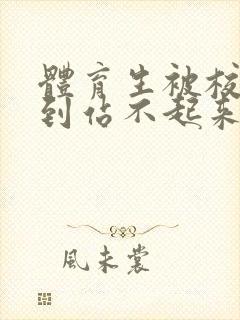 體育生被校
到佔不起來
風未裳